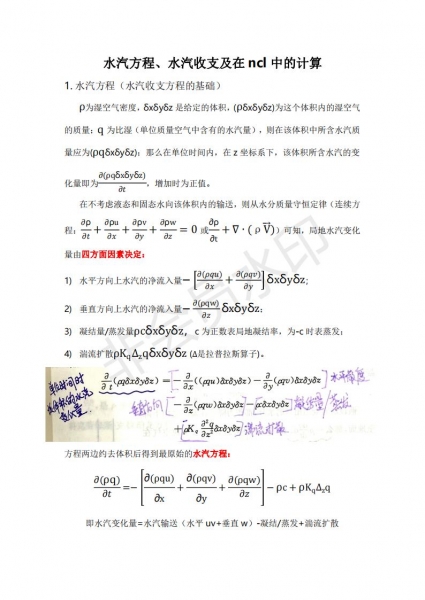 水汽方程、水汽收支及在 ncl 中的计算
1. 水汽方程（水汽收支方程的基础）
ρ为湿空气密度，δxδyδz 是给定的体积，(ρδxδyδz)为这个体积内的湿空气
的质量；q 为比湿（单位质量空气中含有的水汽量），则在该体积中所含水汽质
量应为(ρqδxδyδz)；那么在单位时间内，在 z 坐标系下，该体积所含水汽的变
化量即为∂(ρqδxδyδz)/∂t，增加时为正值。
在不考虑液态和固态水向该体积内的输送，则从水分质量守恒定律（连续方
程：∂ρ/∂t + ∂ρu/∂x + ∂ρv/∂y + ∂ρw/∂z = 0 或∂ρ/∂t + ∇ · ( ρ V⃗)）可知，局地水汽变化
量由四方面因素决定：
1) 水平方向上水汽的净流入量−[∂(ρqu)/∂x + ∂(ρqv)/∂y]δxδyδz；
2) 垂直方向上水汽的净流入量−∂(ρqw)/∂z δxδyδz；
3) 凝结量/蒸发量ρcδxδyδz，c 为正数表局地凝结率，为-c 时表蒸发；
4) 湍流扩散ρKqΔzqδxδyδz (Δ是拉普拉斯算子)。
单位时间
∂/∂t (ρqδxδyδz) = [−∂/∂x ((ρqu)δxδyδz) − ∂/∂y (ρqv)δxδyδz] 水平
[−∂/∂z (ρqw)δxδyδz] [−ρcδxδyδz] 凝结/蒸发
[+ρKq ∂²q/∂z² δxδyδz] 湍流扩散
方程两边约去体积后得到最原始的水汽方程：
∂(ρq)/∂t = −[∂(ρqu)/∂x + ∂(ρqv)/∂y + ∂(ρqw)/∂z] − ρc + ρKqΔzq
即水汽变化量=水汽输送（水平 uv+垂直 w）-凝结/蒸发+湍流扩散
非会员水印